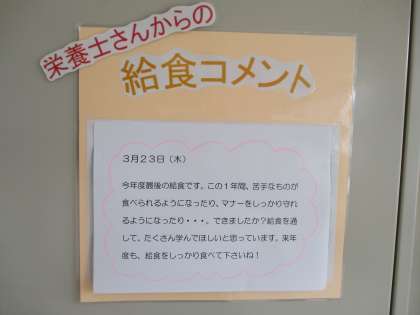 栄養士さんからの
給食コメント
3月23日（木）
今年度最後の給食です。この1年間、苦手なものが
食べられるようになったり、マナーをしっかり守れ
るようになったり・・・、できましたか？給食を通
して、たくさん学んでほしいと思っています。来年
度も、給食をしっかり食べて下さいね！